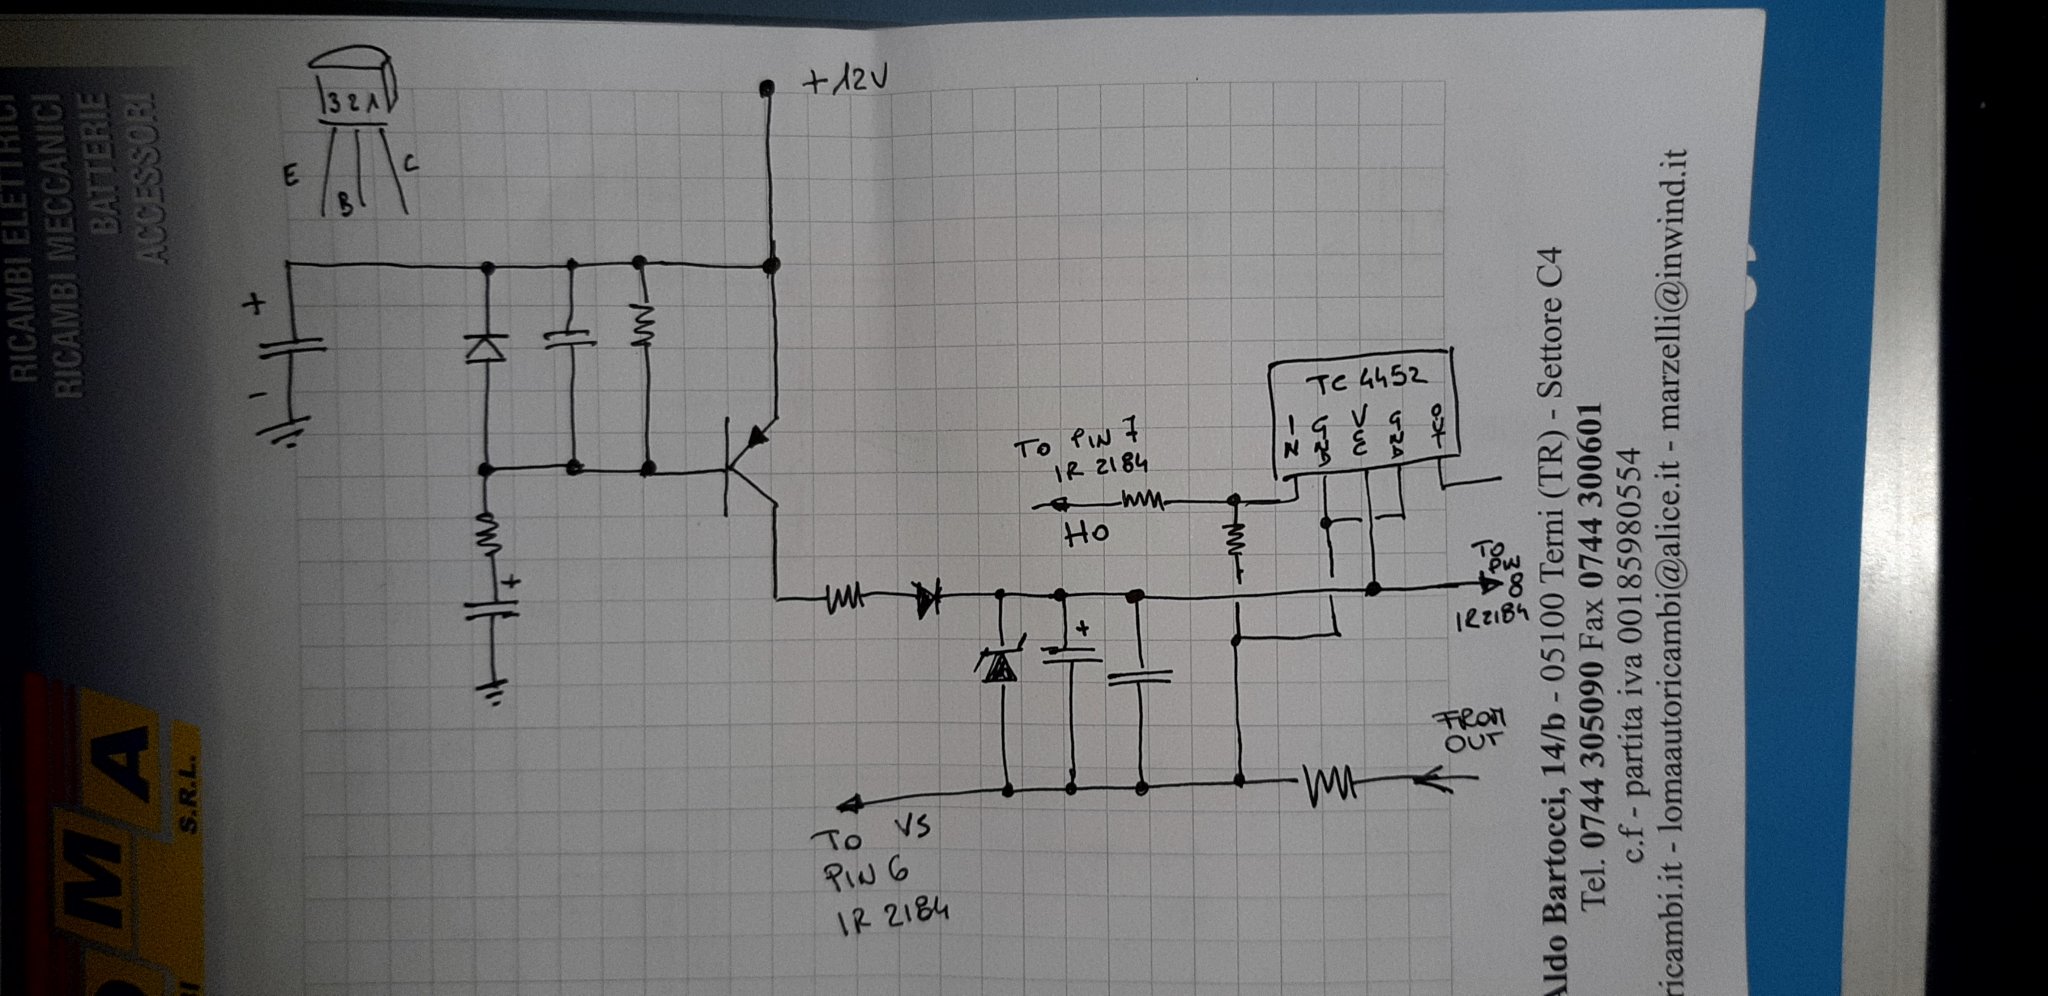 RICAMBI ELETTRICI
RICAMBI MECCANICI
BATTERIE
ACCESSORI
MA
S.R.L.
3 2 1
E
B
C
+12V
+
-
+
TC 4452
IN
GND
VCC
GND
OUT
TO PIN 7
IR 2184
HO
TO
PIN
8
IR2184
+
FROM
OUT
VS
TO
PIN 6
IR 2184
Aldo Bartocci, 14/b - 05100 Terni (TR) - Settore C4
Tel. 0744 305090 Fax 0744 300601
c.f - partita iva 00185980554
ricambi.it - lomaautoricambi@alice.it - marzelli@inwind.it